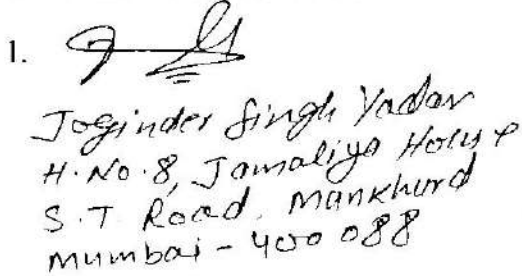 1.
Joginder Singh Yadav
H. No. 8, Jamaliya House
S.T Road, Mankhurd
Mumbai - 400 088